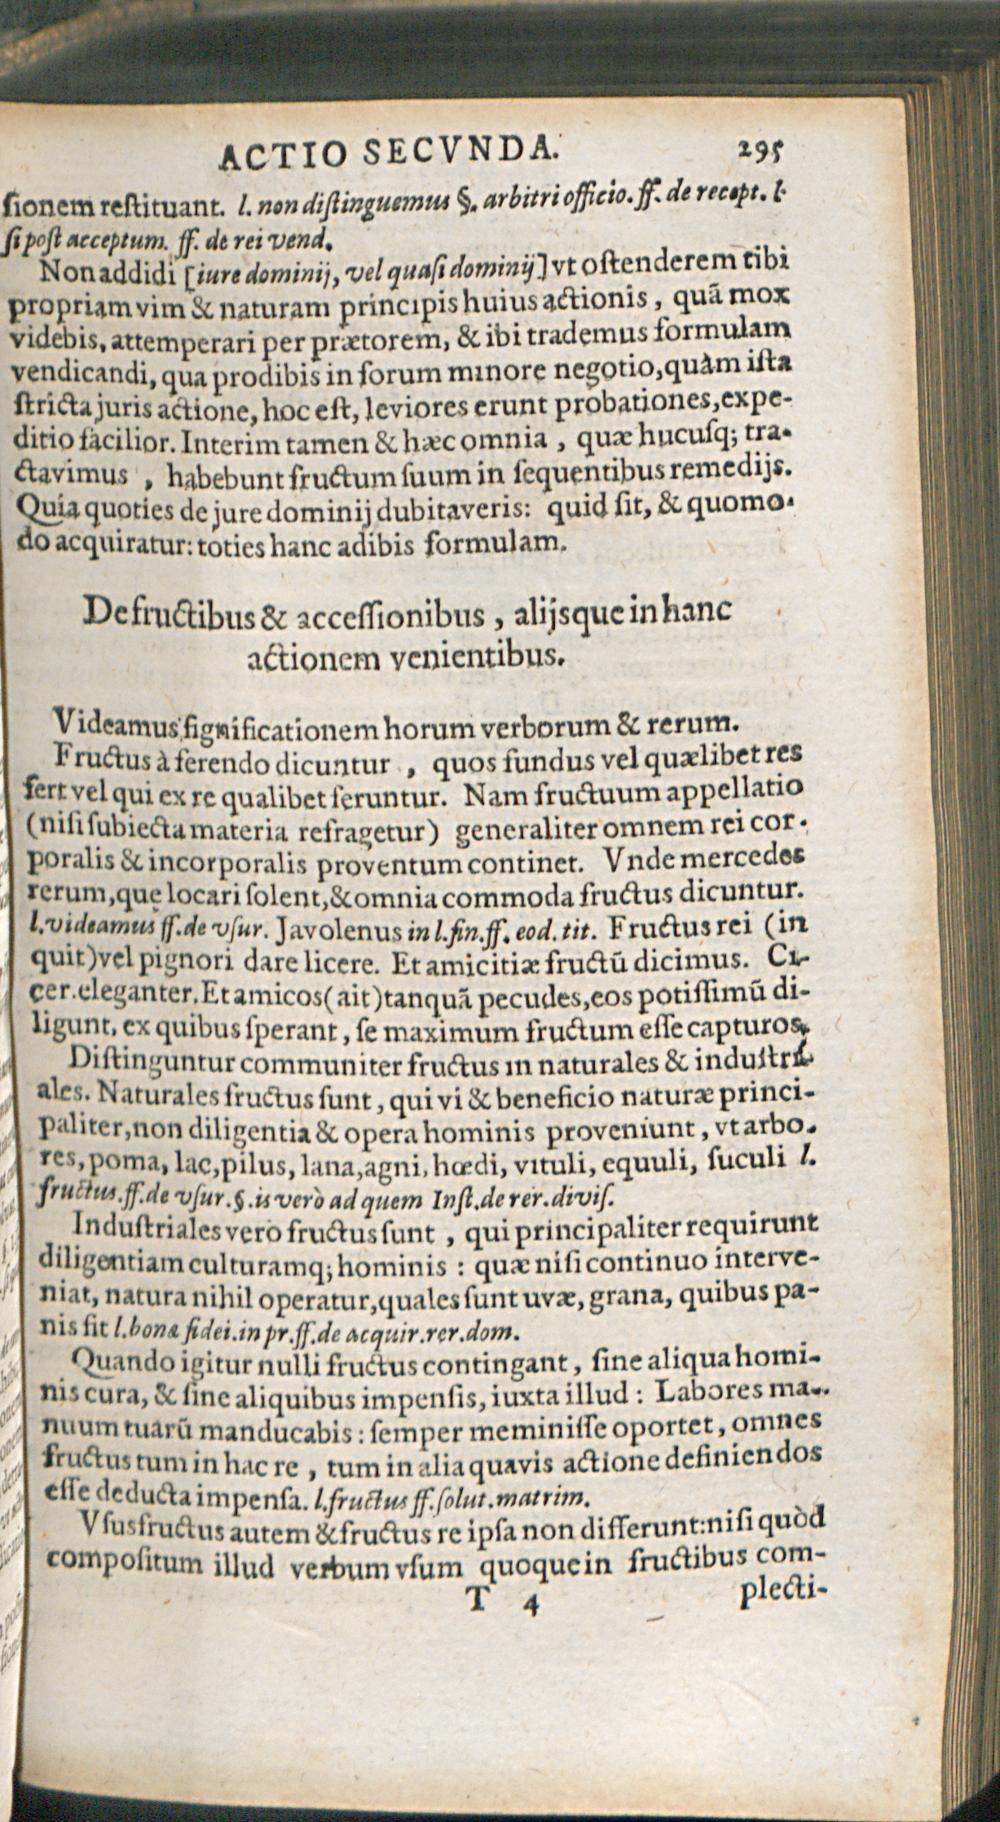 ACTIO SECVNDA. 295
ſionem reſtituant. l. non diſtinguemus §. arbitri officio. ff. de recept. l.
ſi poſt acceptum. ff. de rei vend.
Non addidi [iure dominij, vel quaſi dominij] vt oſtenderem tibi
propriam vim & naturam principis huius actionis, quã mox
videbis, attemperari per prætorem, & ibi trademus formulam
vendicandi, qua prodibis in forum minore negotio, quàm iſta
ſtricta juris actione, hoc eſt, leviores erunt probationes, expe-
ditio facilior. Interim tamen & hæc omnia, quæ hucuſq; tra-
ctavimus, habebunt fructum ſuum in ſequentibus remedijs.
Quia quoties de jure dominij dubitaveris: quid ſit, & quomo-
do acquiratur: toties hanc adibis formulam.
De fructibus & acceſſionibus, alijsque in hanc
actionem venientibus.
Videamus ſignificationem horum verborum & rerum.
Fructus à ferendo dicuntur, quos fundus vel quælibet res
fert vel qui ex re qualibet feruntur. Nam fructuum appellatio
(niſi ſubiecta materia refragetur) generaliter omnem rei cor-
poralis & incorporalis proventum continet. Vnde mercedes
rerum, quę locari ſolent, & omnia commoda fructus dicuntur.
l. videamus ff. de vſur. Javolenus in l. fin. ff. eod. tit. Fructus rei (in
quit) vel pignori dare licere. Et amicitiæ fructũ dicimus. Ci-
cer. eleganter. Et amicos (ait) tanquã pecudes, eos potiſſimũ di-
ligunt, ex quibus ſperant, ſe maximum fructum eſſe capturos.
Diſtinguntur communiter fructus in naturales & induſtri-
ales. Naturales fructus ſunt, qui vi & beneficio naturæ princi-
paliter, non diligentia & opera hominis proveniunt, vt arbo-
res, poma, lac, pilus, lana, agni, hœdi, vituli, equuli, ſuculi l.
fructus. ff. de vſur. §. is verò ad quem Inſt. de rer. diviſ.
Induſtriales vero fructus ſunt, qui principaliter requirunt
diligentiam culturamq; hominis: quæ niſi continuo interve-
niat, natura nihil operatur, quales ſunt uvæ, grana, quibus pa-
nis fit l. bonæ fidei. in pr. ff. de acquir. rer. dom.
Quando igitur nulli fructus contingant, ſine aliqua homi-
nis cura, & ſine aliquibus impenſis, iuxta illud: Labores ma-
nuum tuarũ manducabis: ſemper meminiſſe oportet, omnes
fructus tum in hac re, tum in alia quavis actione definiendos
eſſe deducta impenſa. l. fructus ff. ſolut. matrim.
Vſusfructus autem & fructus re ipſa non differunt: niſi quòd
compoſitum illud verbum vſum quoque in fructibus com-
T 4 plecti-